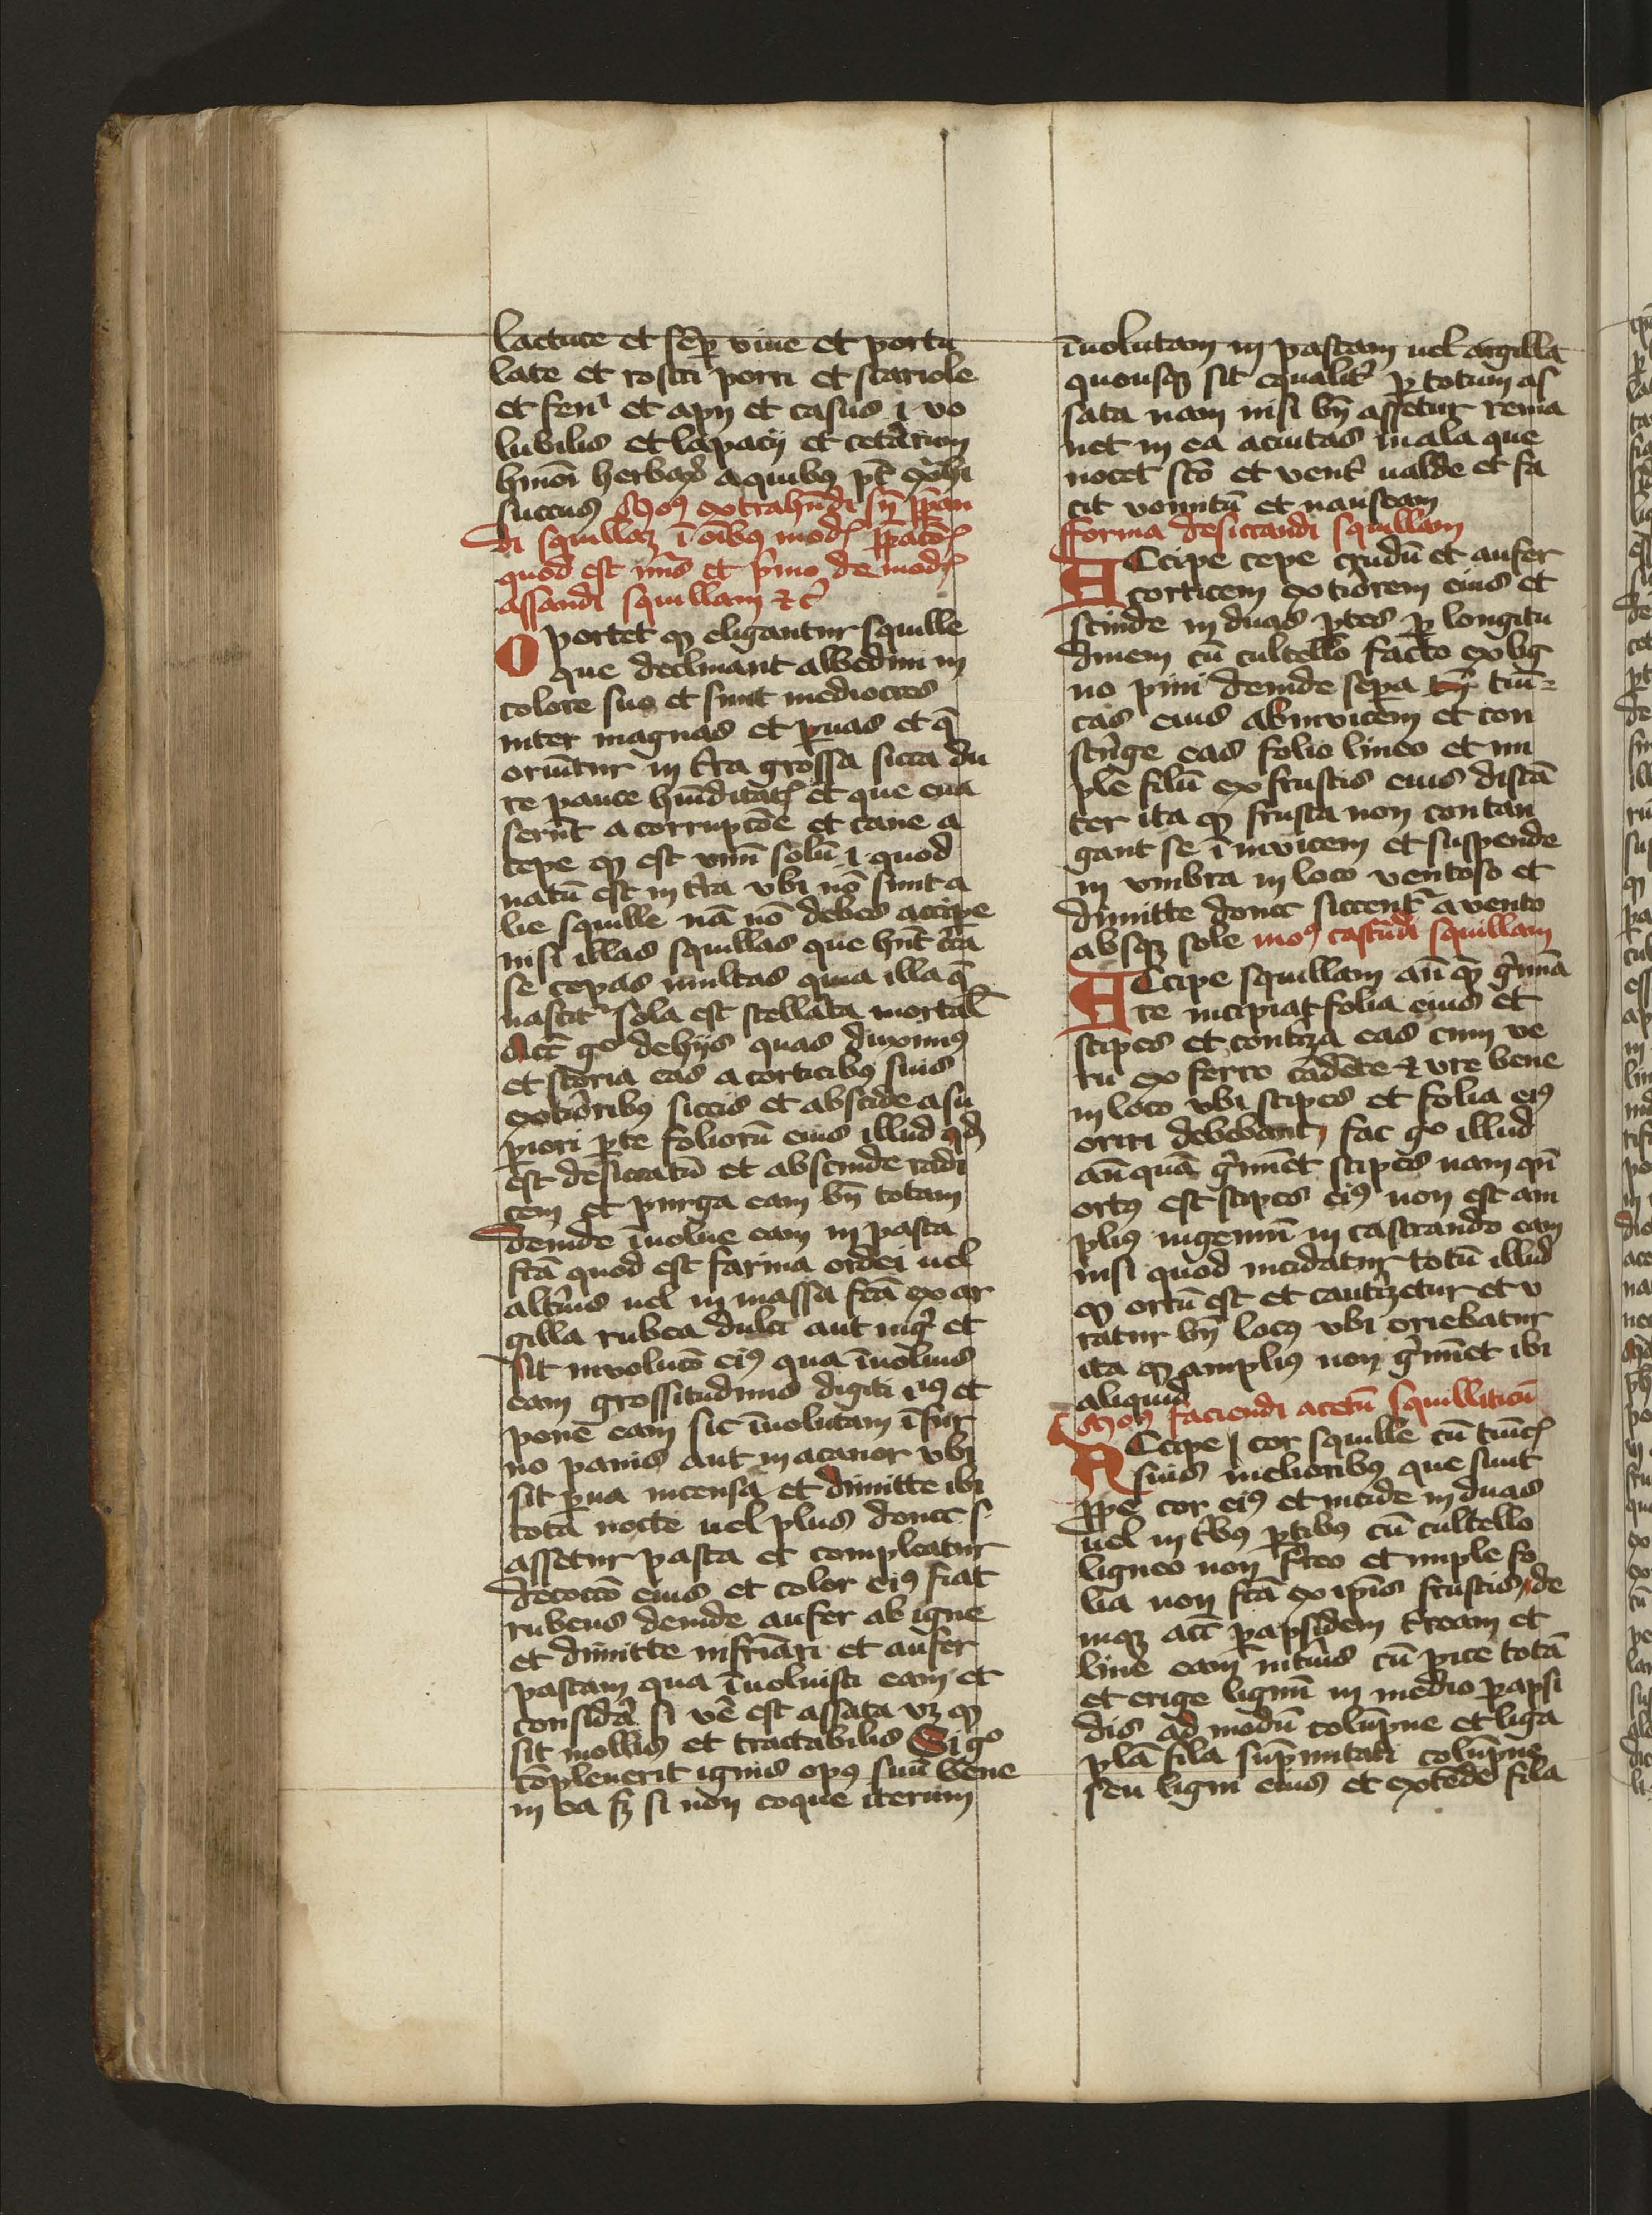 lactuce et sēp viue et portu
late et rostri porri et scariole
et feni et apij et casus i uo
lubilis et lapacij et ceterum
hmōi herbaꝝ a quibꝰ pt̄ ext̄hi
succus Modꝰ extrahēdi sū p̄pan
di squillaꝫ ī oībꝰ modꝭ p̄patōꝭ
quod est nr̄is et primo de modꝭ
assandi squillam ⁊ cͤ
Oportet ꝙ eligantur squille
que declinant albedini in
colore suo et sunt mediocres
inter magnas et paruas et q̄
oriūtur in tr̄a grossa sicca du
re pauce hūiditatꝭ et que eua
serūt a corrupcōe et caue a
cepe ꝙ est vnū solū i quod
natū est in tr̄a vbi nō sunt a
lie squille nā nō debes accipe
nisi illas squillas que hn̄t cr̄ca
se cepas multas quia illa q̄
nascitᷣ sola est stellata mortal
Acc̄ gͦ de hijs quas diximꝰ
et scoria eas a corticibꝰ suis
exteriōribꝰ siccis et abscide a su
piori pte foliorū eius illud qd̄
est desiccatū et abscinde radi
cem et purga eam bn̄ totam
deinde īuolue eam in pasta
fc̄a quod est farina ordei uel
alterius uel in massa fc̄a ex ar
gilla rubea dulci aut nigr̄ et
sit inuolucō eiꝰ qua īuoluis
eam grossitudinis digiti vnꝰ et
pone eam sic īuolutam ī fur
no panis aut in acanor vbi
sit prua incensa et dimitte ibi
totā nocte uel plus donec
assetur pasta et compleatur
decoccō eius et color eiꝰ fiat
rubeus deinde aufer ab igne
et dimitte infrīari et aufer
pastam qua īuoluisti eam et
considera si vē est assata vꝫ ꝙ
sit mollis et tractabilis Si gͦ
cōpleuerit ignis opꝰ suū bene
in ea sꝫ si non coque iterum
īuolutam in pastam uel argilla
quousqꝫ sit equalitr̄ p totum as
sata nam nisi bn̄ assetur rema
net in ea acuitas mala que
nocet sto et ventr̄ ualde et fa
cit vomitū et nauseam
Forma desiccandi squillam
ACcipe cepe crudū et aufer
corticem extiorem eius et
scinde in duas ptes p longitu
dinem cū cultello facto ex lig
no pini deinde sepa tuni=
cas eius abinvicem et con
strīge eas folio lineo et im
ple filū ex frustis eius distā
ter ita ꝙ frusta non contan
gant se ī invicem et suspende
in vmbra in loco ventoso et
dimitte donec siccentᷣ a vento
absqꝫ sole moꝰ castrādi squillam
ACcipe squillam an̄ qꝫ gr̄mina
re incipiat folia eius et
stipes et cauteriza eas cum ve
ru ex ferro cādēte ⁊ vre bene
in loco vbi stipes et folia eiꝰ
oriri debebant, fac gͦ illud
an̄ quā gr̄miēt stipes nam qn̄
ortꝰ est stipes eiꝰ non est am
pliꝰ ingeniū in castrando eam
nisi quod incidatur totū illud
ꝙ ortū est et cauterizetur et v
ratur bn̄ locꝰ vbi oriebatur
ita ꝙ ampliꝰ non gr̄miet ibi
aliquid
Moꝰ faciendi acetū squilliticū
ACcipe cor squille cū tunicꝭ
suis melioribꝰ que sunt
ꝓpe cor eiꝰ et incide in duas
uel in trībꝰ ptibꝰ cū cultello
ligneo non ferreo et imple fo
lia non fc̄a ex ip̄is frustis, de
inqꝫ acc̄ papsidem terream et
line eam interius cū pice totā
et erige lignū in medio papsi
dis ad modū colūpne et liga
plā fila sūpmitati colūpne
seu ligni eius et extēde fila